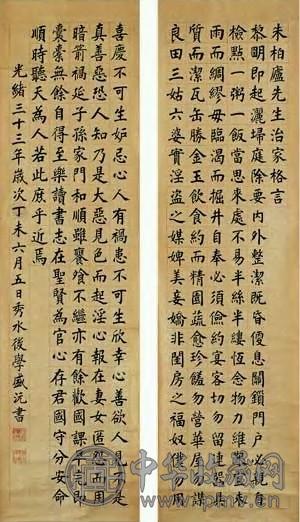 朱柏廬先生治家格言
黎明即起灑掃庭除要內外整潔既昏便息關鎖門戶必親自
檢點一粥一飯當思來處不易半絲半縷恆念物力維艱宜未
雨而綢繆毋臨渴而掘井自奉必須儉約宴客切勿留連器具
質而潔瓦缶勝金玉飲食約而精園蔬愈珍饈勿營華屋勿謀
良田三姑六婆實淫盜之媒婢美妾嬌非閨房之福奴僕勿用
喜慶不可生妒忌心人有禍患不可生欣幸心善欲人見不是
真善惡恐人知乃是大惡見色而起淫心報在妻女匿怨而用
暗箭禍延子孫家門和順雖饔飧不繼亦有餘歡國課早完即
囊橐無餘自得至樂讀書志在聖賢為官心存君國守分安命
順時聽天為人若此庶乎近焉
光緒三十三年歲次丁未六月五日秀水後學盛沅書
中华收藏网